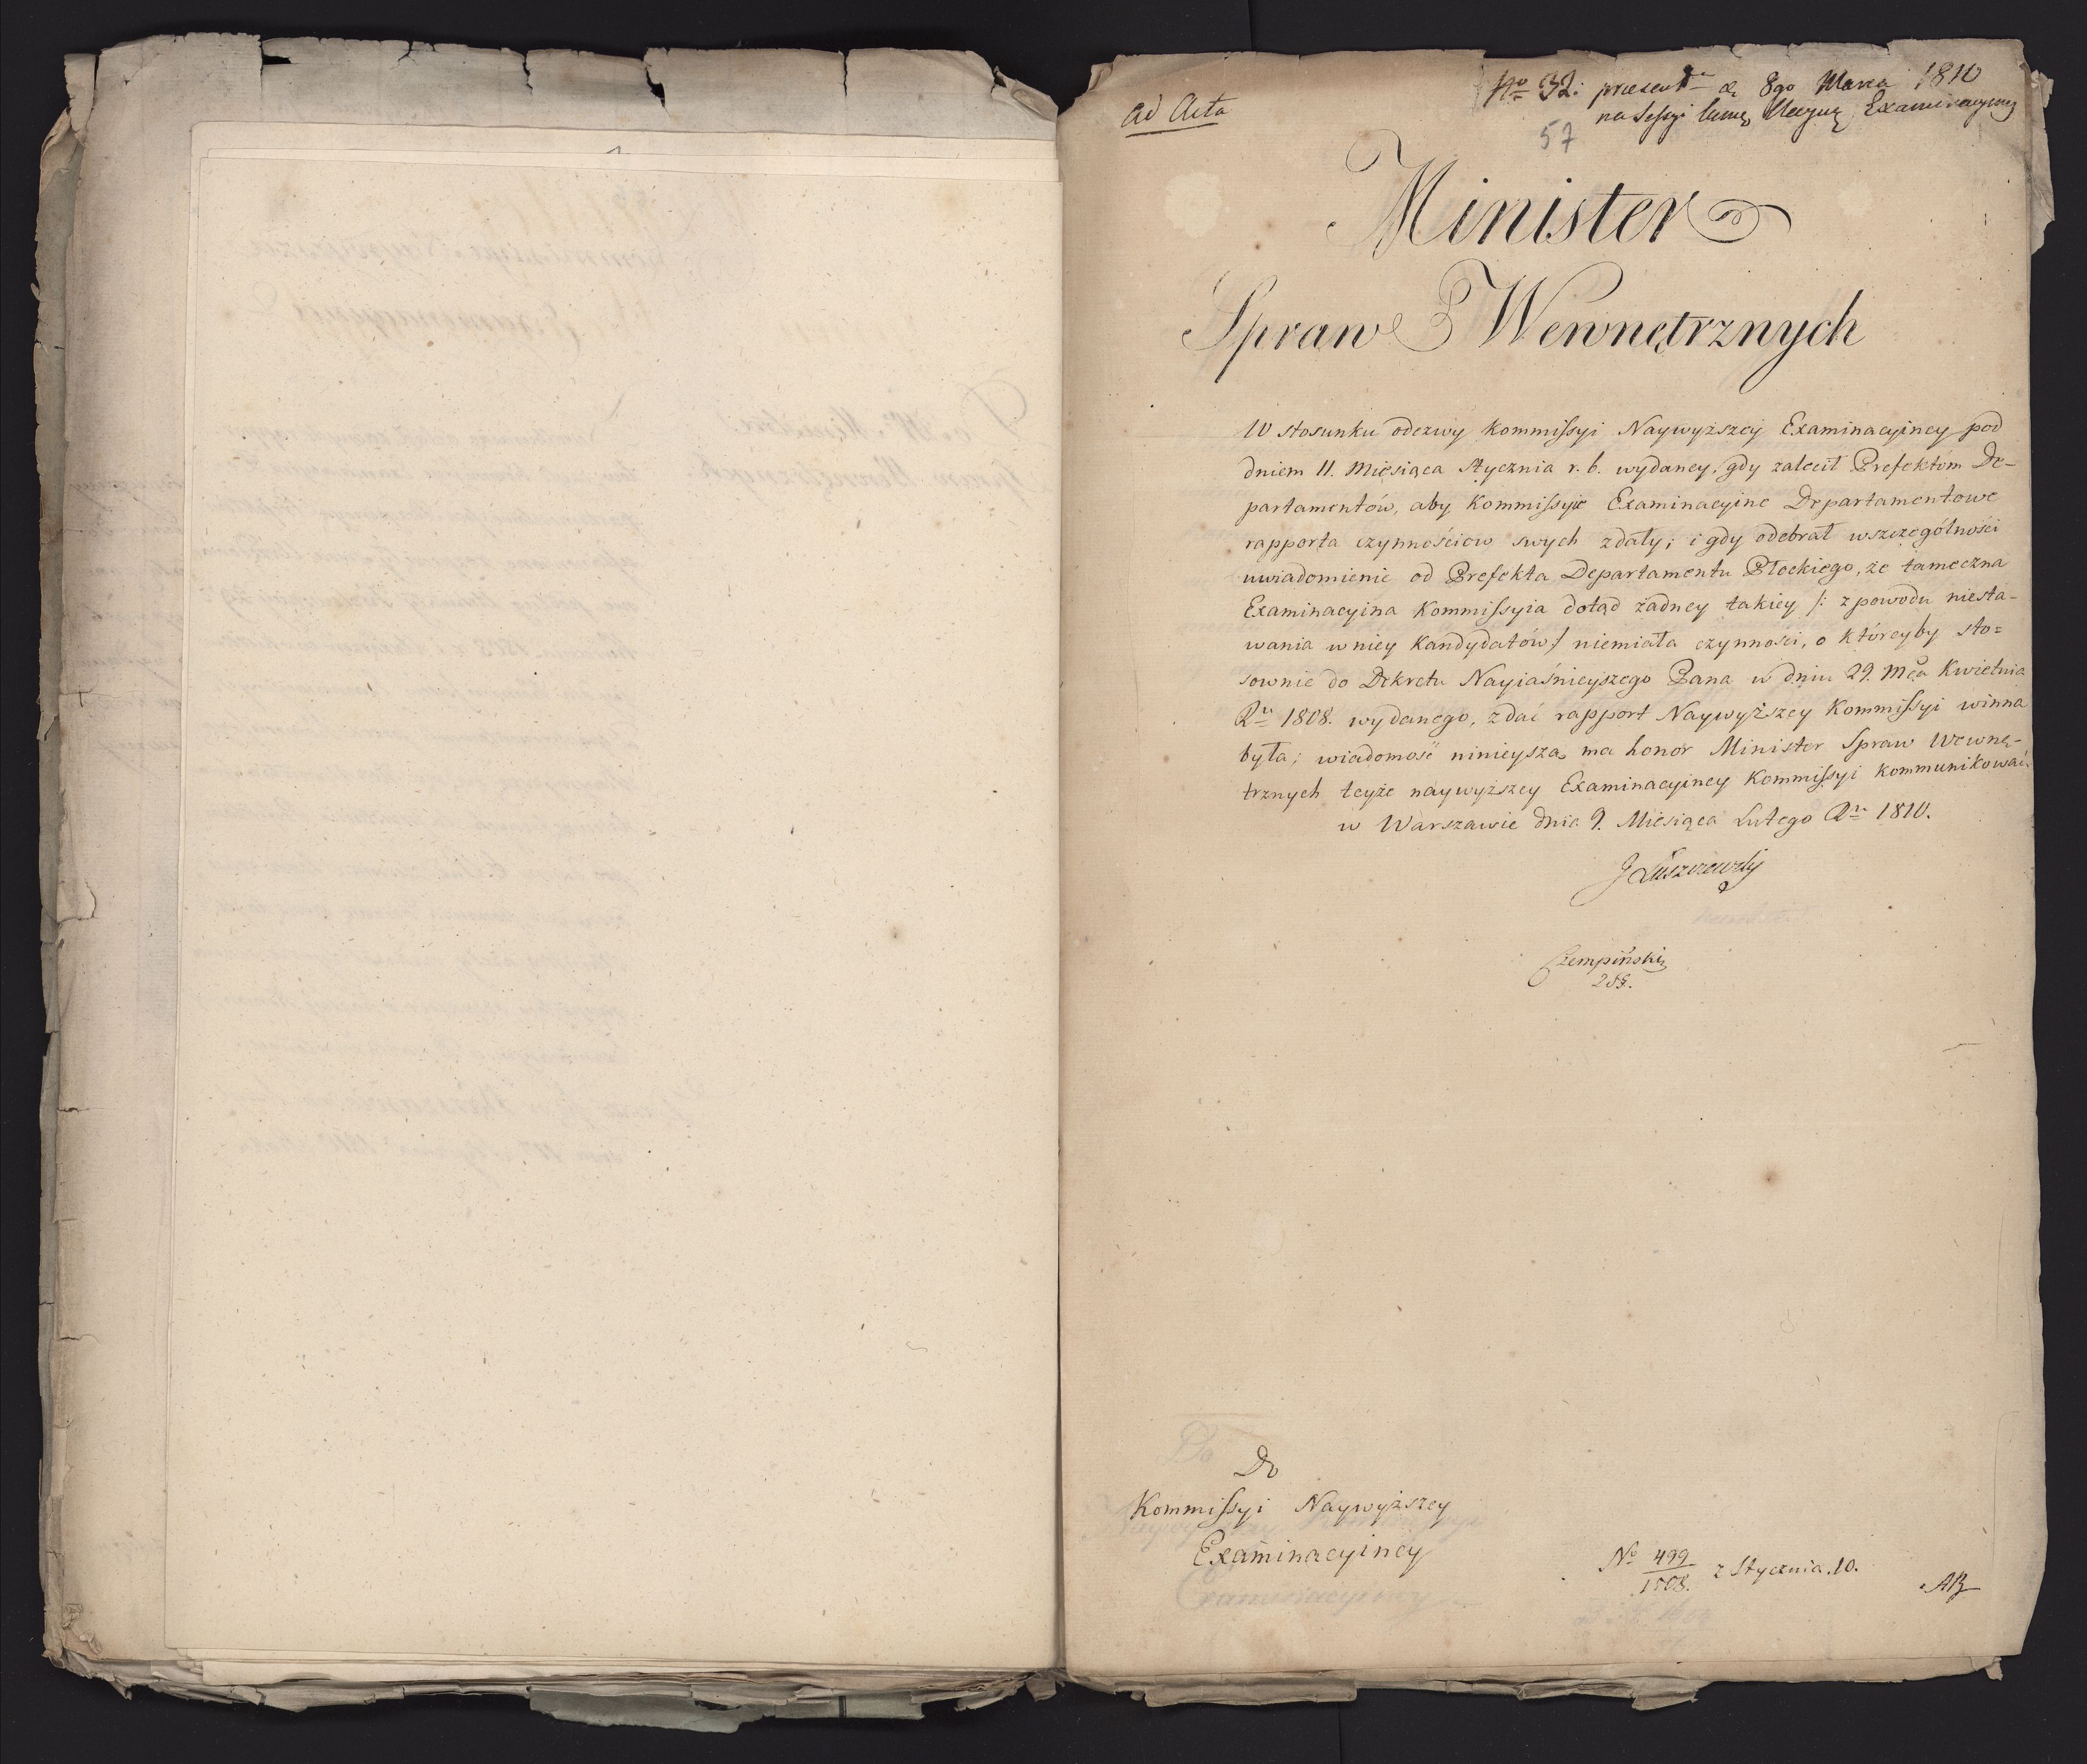 ad Acta
No 32. praesent d. 8go Marca 1810
na Sessyi Examinacyiney
57
Minister
Spraw Wewnętrznych
W stosunku odezwy Kommissyi Naywyższey Examinacyiney pod
dniem 11. Miesiąca Stycznia r. b. wydaney, gdy zalecił Prefektom De-
partamentów, aby Kommissyie Examinacyine Departamentowe
rapporta czynnościow swych zdały; i gdy odebrał wszczególności
uwiadomienie od Prefekta Departamentu Płockiego, że tameczna
Examinacyina Kommissyia dotąd żadney takiey /: z powodu niesta-
wania w niey Kandydatów :/ niemiała czynności, o któreyby sto=
sownie do Dekretu Nayiaśnieyszego Pana w dniu 29. Mca Kwietnia
Ru 1808. wydanego, zdać rapport Naywyższey Kommissyi winna
była; wiadomość ninieyszą ma honor Minister Spraw Wewnę-
trznych teyże naywyższey Examinacyiney Kommissyi kommunikować.
w Warszawie dnia 9. Miesiąca Lutego Ru 1810.
J Łuszczewski
Czempiński
Do
Kommissyi Naywyższey
Examinacyiney
No 499/1508. z Stycznia. 10.